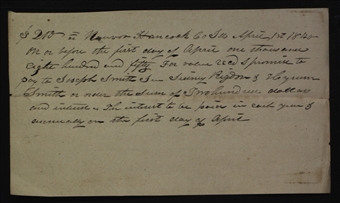 $ 200 Nauvoo Hancock Co Ills April 1st 1840
On or before the first day of April one thousand
eight hundred and fifty For value recd I promise to
pay to Joseph Smith Jun Sidney Rigdon & Hyrum
Smith or order the sum of Two hundred dollars
and interest the interest to be paid in each year &
annually on the first day of April